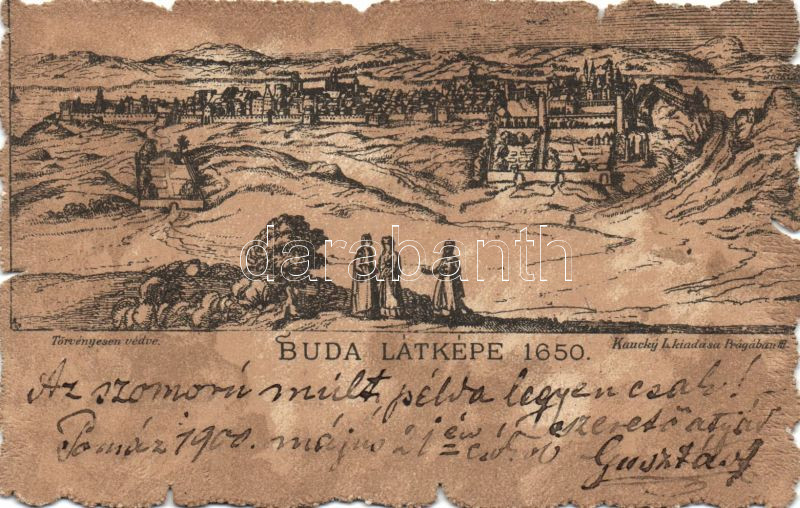 darabanth
Törvényesen védve.
BUDA LÁTKÉPE 1650.
Kaucký L. kiadása Prágában III.
Az szomorú múlt, példa legyen csak!
Pomáz 1900. május 21én szerető atyád
Gusztáv